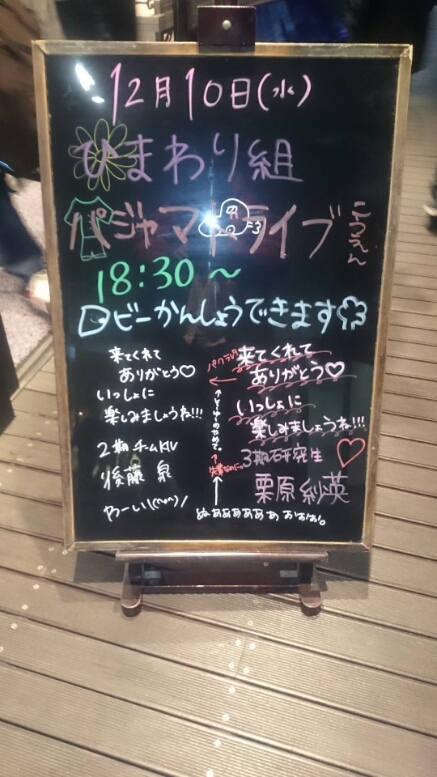 12月10日(水)
ひまわり組
パジャマドライブ
こうえん
18:30〜
ロビーかんしょうできます
来てくれて
ありがとう♡
いっしょに
楽しみましょうね!!!
2期 チームKⅣ
後藤 泉
やーい\(^o^)/
パクったな
←
来てくれて
ありがとう♡
いっしょに
楽しみましょうね!!!
3期研究生
栗原紗英
ぬああああああおおお。